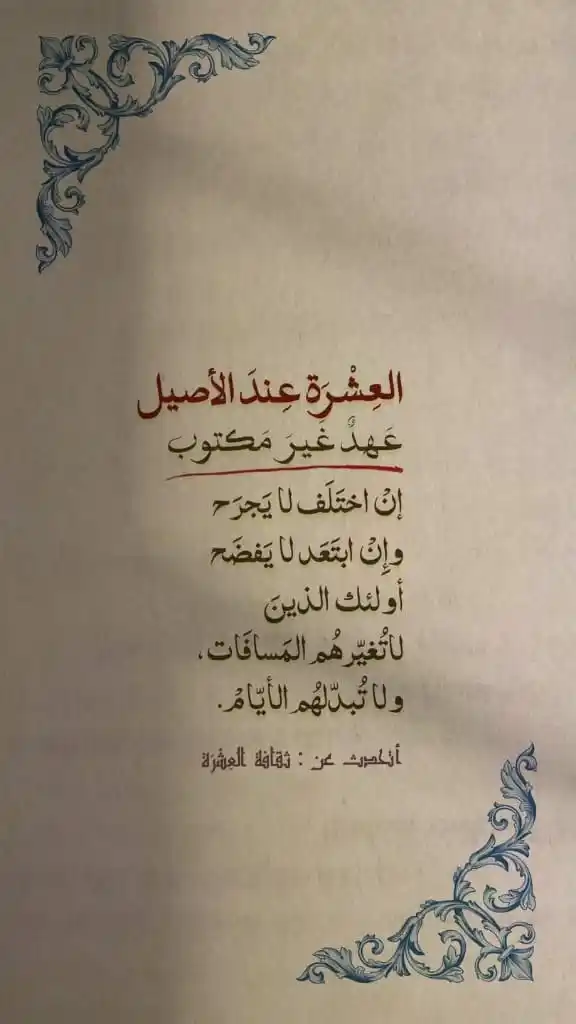 العِشْرَة عِندَ الأصيل
عَهدٌ غَيرَ مَكتوب
إنْ اختَلَف لا يَجرَح
وإِنْ ابتَعَد لا يَفضَح
أولئك الذينَ
لاتُغيّرهُم المَسافَات،
ولا تُبدّلهُم الأيّامْ.
أتحدث عن : ثقافة العِشْرَة